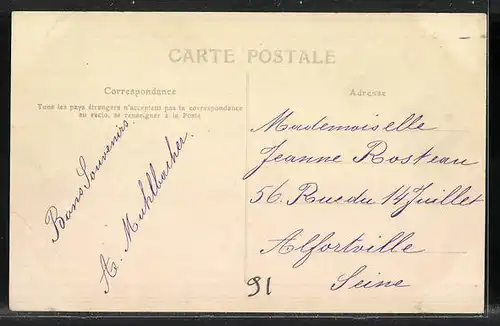 CARTE POSTALE
Correspondance
Tous les pays étrangers n'acceptent pas la correspondance
au recto, se renseigner à la Poste
Bons Souvenirs.
A. Muhlbacher.
Adresse
Mademoiselle
Jeanne Rosteau
56. Rue du 14 Juillet
Alfortville
Seine
91